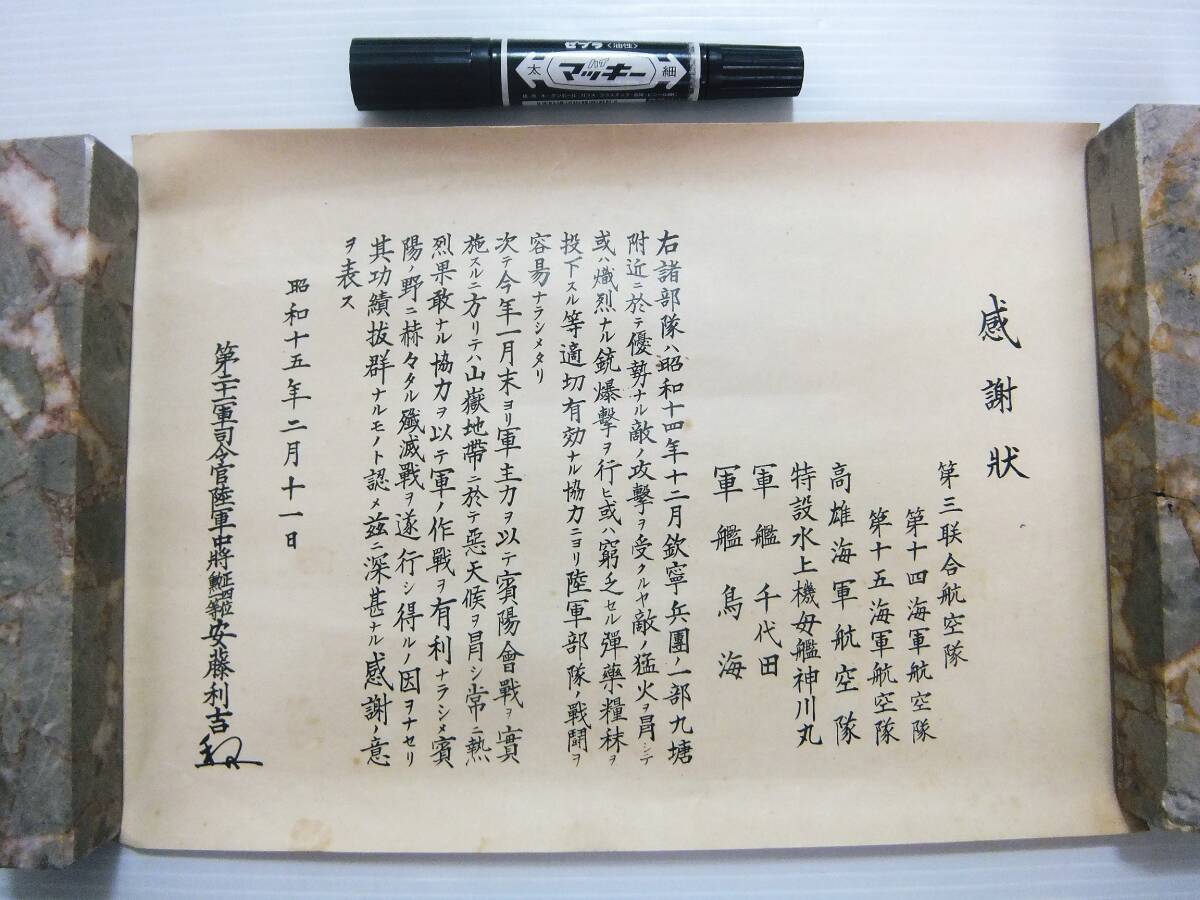 ゼブラ〈油性〉
ハイ
マッキー
太
細
感謝狀
第三联合航空隊
第十四海軍航空隊
第十五海軍航空隊
高雄海軍航空隊
特設水上機母艦神川丸
軍艦千代田
軍艦鳥海
右諸部隊ハ昭和十四年十二月欽寧兵團ノ一部九塘
附近ニ於テ優勢ナル敵ノ攻擊ヲ受クルヤ敵ノ猛火ヲ冒シテ
或ハ熾烈ナル銃爆擊ヲ行ヒ或ハ窮乏セル彈藥糧秣ヲ
投下スル等適切有効ナル協力ニヨリ陸軍部隊ノ戰鬪ヲ
容易ナラシメタリ
次テ今年一月末ヨリ軍主力ヲ以テ賓陽會戰ヲ實
施スルニ方リテハ山嶽地帶ニ於テ惡天候ヲ冒シ常ニ熱
烈果敢ナル協力ヲ以テ軍ノ作戰ヲ有利ナラシメ賓
陽ノ野ニ赫々タル殲滅戰ヲ遂行シ得ルノ因ヲナセリ
其功績拔群ナルモノト認メ茲ニ深甚ナル感謝ノ意
ヲ表ス
昭和十五年二月十一日
第二十一軍司令官陸軍中將正四位勳二等安藤利吉